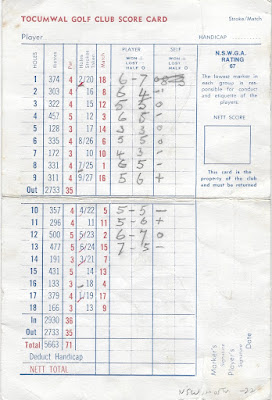 TOCUMWAL GOLF CLUB SCORE CARD Stroke/Match
Player HANDICAP
HOLES Metres Par Index Stroke Match PLAYER WON + LOST - HALF O SELF WON + LOST - HALF O
1 374 4 2/20 18 6 - 7
2 303 4 4 16 8 6 4 -
3 322 4 15 12 5 5 0
4 457 5 12 6 3 5 -
5 128 3 17 14 3 3 0
6 335 4 8/26 5 5 5 0
7 172 3 10 10 4 3 -
8 331 4 7/25 1 6 5 -
9 311 4 9/27 16 5 6 +
Out 2733 35
10 357 4 4/22 5 5 - 5 -
11 296 4 11 11 5 - 6 +
12 500 5 5/23 2 6 - 7 0
13 477 5 6/24 15 7 - 5 -
14 191 3 3/21 7
15 431 5 14 13
16 133 3 18 4
17 379 4 1/19 17
18 166 3 13 9
In 2930 36
Out 2733 35
Total 5663 71
Deduct Handicap
NETT TOTAL
N.S.W.G.A. RATING 67
The lowest marker in each group is responsible for conduct and etiquette of the players.
NETT SCORE
This card is the property of the club and must be returned
Marker's Signature
Player's Signature
Date